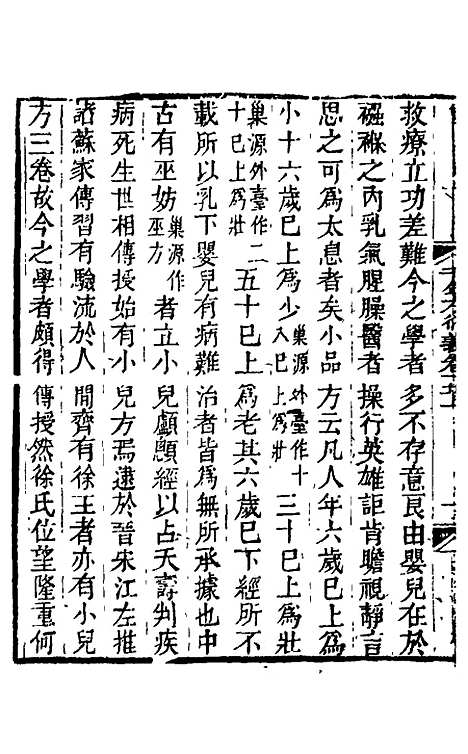 救療立功差難今之學者多不存意良由嬰兒在於
襁褓之內乳氣腥臊醫者操行英雄詎肯瞻視靜言
思之可爲太息者矣小品方云凡人年六歲已上爲
小十六歲已上爲少巢源外臺作十八已上爲少三十已上爲壯
巢源外臺作二十已上爲壯五十已上爲老其六歲已下經所不
載所以乳下嬰兒有病難治者皆爲無所承據也中
古有巫妨巢源作巫方者立小兒顱顖經以占夭壽判疾
病死生世相傳授始有小兒方焉逮於晉宋江左推
諸蘇家傳習有驗流於人間齊有徐王者亦有小兒
方三卷故今之學者頗得傳授然徐氏位望隆重何